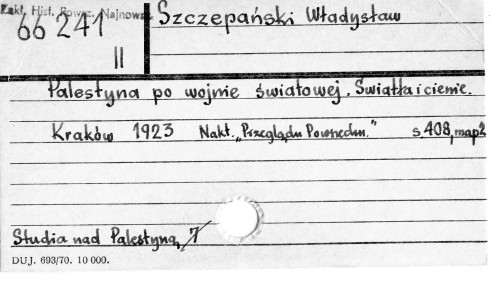 Zakł. Hist. Powsz. Najnowsz.
66241
II
Szczepański Władysław
Palestyna po wojnie światowej. Światła i cienie.
Kraków 1923 Nakł. „Przeglądu Powszechn." s. 408, map 2
Studia nad Palestyną, 7
DUJ. 693/70. 10 000.